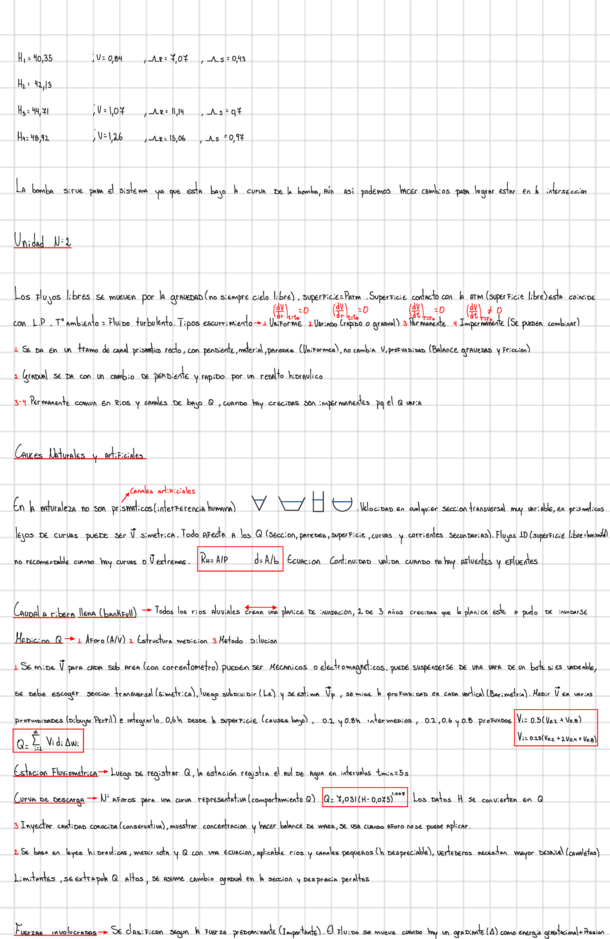 H₁ = 40,35 ; V = 0,84 , Λr = 7,07 , Λs = 0,43
H₂ = 42,13
H₃ = 44,71 ; V = 1,07 , Λr = 11,14 , Λs = 0,7
H₄ = 48,92 ; V = 1,26 , Λr = 15,06 , Λs = 0,97
La bomba sirve para el sistema ya que esta bajo la curva de la bomba, aún asi podemos hacer cambios para lograr estar en la interseccion
Unidad N:2
Los flujos libres se mueven por la gravedad (no siempre cielo libre). superficie = Patm. Superficie contacto con la atm (superficie libre) esta coincide
(dV/dr) t:cte = 0 (dV/dr) t:cte ≠ 0 (dV/dt) r:cte = 0 (dV/dt) r:cte ≠ 0
con L.P. T° ambiente = Fluido turbulento. Tipos escurrimiento → 1 Uniforme 2 Variado (rapido o gradual) 3 Permanente 4 Impermanente (Se pueden combinar)
1 Se da en un tramo de canal prismatico recto, con pendiente, material, paredes (Uniformes), no cambia V, profundidad (Balance gravedad y Friccion)
2 Gradual se da con un cambio de pendiente y rapido por un resalto hidraulico
3-4 Permanente comun en Rios y canales de bajo Q, cuando hay crecidas son impermanentes pq el Q varia
Cauces Naturales y artificiales
Canales artificiales
En la naturaleza no son prismaticos (interferencia humana) Velocidad en cualquier seccion transversal muy variable, en prismaticos
lejos de curvas puede ser V simetrica. Todo afecta a los Q (seccion, paredes, superficie, curvas y corrientes secundarias). Flujos 1D (superficie libre horizontal)
no recomendable cuando hay curvas o V extremas. RH = A/P d = A/b Ecuacion Continuidad valida cuando no hay afluentes y efluentes
Caudal a ribera llena (bankfull) → Todos los rios aluviales crean una planice de inundacion, 2 de 3 años crecidas que la planice este a punto de inundarse
Medicion Q → 1 Aforo (A/V) 2 Estructura medicion 3 Metodo Dilucion
1 Se mide V para cada sub area (con correntometro) pueden ser mecanicos o electromagneticos, puede suspenderse de una vara de un bote si es vadeable,
se debe escoger seccion transversal (simetrica), luego subdividir (Le) y se estima Vp, se mide la profundidad en cada vertical (Batimetria). Medir V en varias
profundidades (dibujar Perfil) e integrarlo. 0,6h desde la superficie (causes bajo), 0.2 y 0.8h intermedios, 0.2, 0.6 y 0.8 profundos Vi = 0.5(V0.2 + V0.8)
Vi = 0.25(V0.2 + 2V0.4 + V0.8)
Q = Σ Vi di Δwi
Estacion Fluviometrica → Luego de registrar Q, la estación registra el nivel de agua en intervalos tmin = 5s
Curva de Descarga → N° aforos para una curva representativa (comportamiento Q) Q = 7,031(H-0,075) Los datos H se convierten en Q
3 Inyectar cantidad conocida (conservativa), muestrar concentracion y hacer balance de masa, se usa cuando aforo no se puede aplicar.
2 Se basa en leyes hidraulicas, medir cota y Q con una ecuacion, aplicable rios y canales pequeños (h despreciable), vertederos necesitan mayor desnivel (canaletas)
Limitantes, se extrapola Q altos, se asume cambio gradual en la seccion y desprecia peraltes
Fuerzas involucradas → Se clasifican segun la fuerza predominante (Importante). El Fluido se mueve cuando hay un gradiante (Δ) como energia gravitacional + Presion